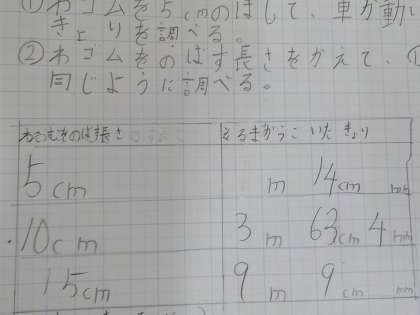 ①わゴムを5cmのばして、車が動い
きょりを調べる。
②わゴムをのばす長さをかえて、①
同じように調べる。
わゴムをのばす長さ くるまがうごいたきょり
5cm m 14cm mm
10cm 3m 63cm 4mm
15cm 9m 9cm mm